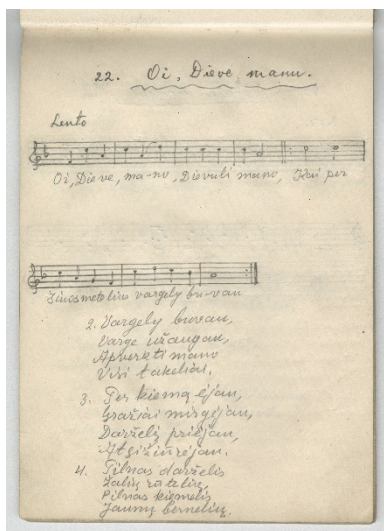 22. Oi, Dieve manu.
Lento
Oi, Dieve, ma-no, Dievuli mano, Kai per
šiuos metelius vargely bu-vau
2. Vargely buvau,
Varge užaugau,
Apverkti mano
Visi takeliai.
3. Per kiemą ėjau,
Gražiai mirgėjau,
Darželį priėjau,
Atsižiūrėjau.
4. Pilnas darželis
Žalių rūtelių,
Pilnas kiemelis
Jaunų bernelių.